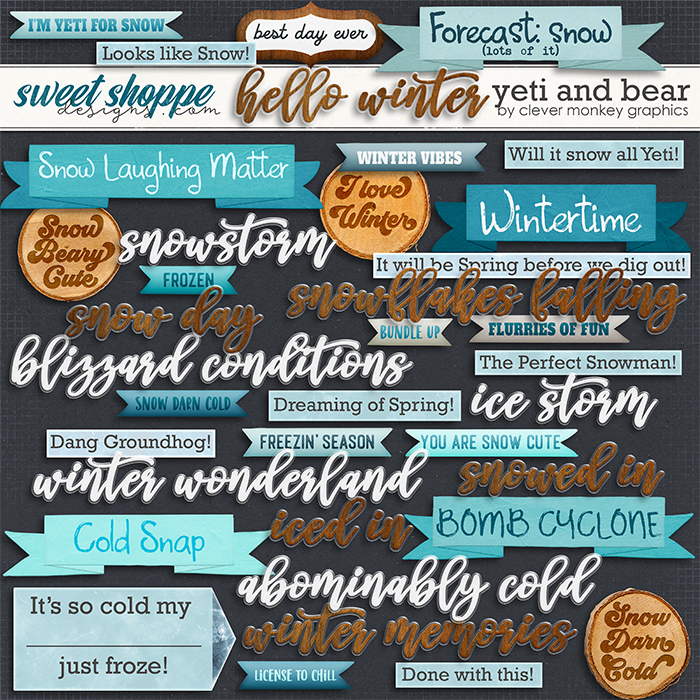 I'M YETI FOR SNOW
best day ever
Forecast: Snow
(lots of it)
Looks like Snow!
sweet shoppe
designs.com
hello winter
yeti and bear
by clever monkey graphics
Snow Laughing Matter
WINTER VIBES
Will it snow all Yeti!
I love
Winter
Wintertime
Snow
Beary
Cute
snowstorm
It will be Spring before we dig out!
FROZEN
snowflakes falling
snow day
BUNDLE UP
FLURRIES OF FUN
blizzard conditions
The Perfect Snowman!
SNOW DARN COLD
Dreaming of Spring!
ice storm
Dang Groundhog!
FREEZIN' SEASON
YOU ARE SNOW CUTE
winter wonderland
snowed in
iced in
BOMB CYCLONE
Cold Snap
abominably cold
It's so cold my
just froze!
winter memories
Snow
Darn
Cold
LICENSE TO CHILL
Done with this!